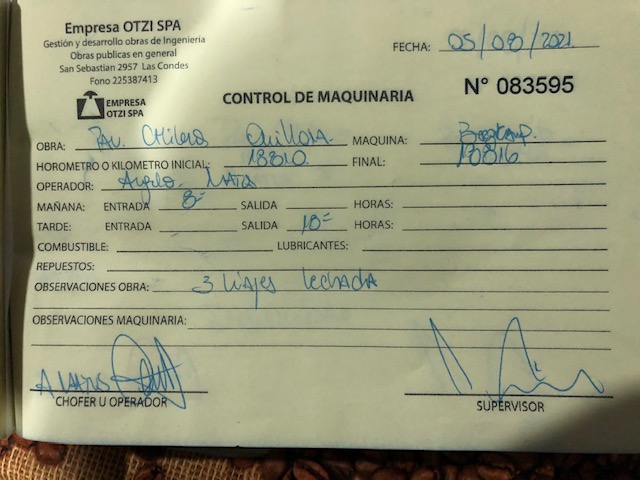 Empresa OTZI SPA
Gestión y desarrollo obras de Ingenieria
Obras publicas en general
San Sebastian 2957 Las Condes
Fono 225387413
FECHA: 05/08/2021
EMPRESA
OTZI SPA
CONTROL DE MAQUINARIA
N° 083595
OBRA: MAQUINA:
HOROMETRO O KILOMETRO INICIAL: FINAL:
OPERADOR:
MAÑANA: ENTRADA 8= SALIDA HORAS:
TARDE: ENTRADA SALIDA 18= HORAS:
COMBUSTIBLE: LUBRICANTES:
REPUESTOS:
OBSERVACIONES OBRA: 3 viajes lechada
OBSERVACIONES MAQUINARIA:
CHOFER U OPERADOR SUPERVISOR